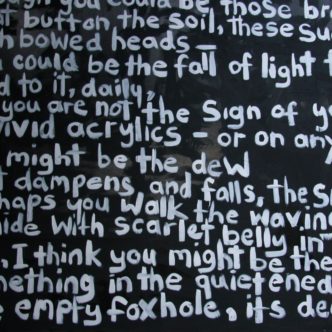 you could be those br
at button the soil, these su
h bowed heads —
could be the fall of light t
d to it, daily,
you are not the sign of y
vivid acrylics — or on any
might be the dew
t dampens, and falls, the S
haps you walk the wavin
ide with scarlet belly, in
, I think you might be the
mething in the quietened
e empty foxhole, its de